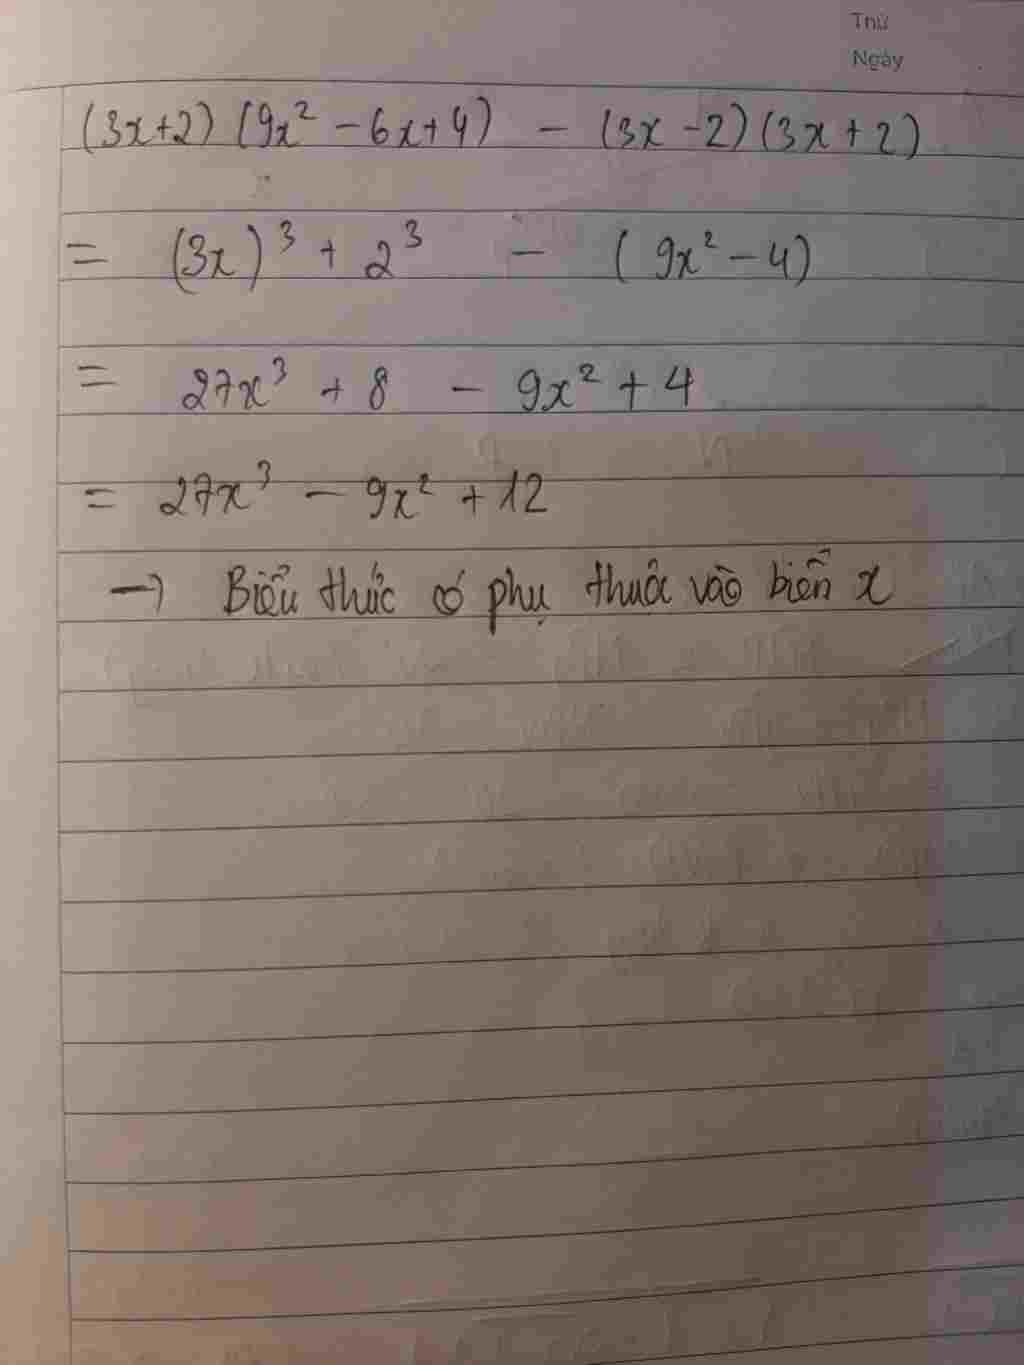 Thứ
Ngày
(3x+2) (9x² - 6x+4) - (3x - 2) (3x + 2)
= (3x)³ + 2³ - (9x² - 4)
= 27x³ + 8 - 9x² + 4
= 27x³ - 9x² + 12
→ Biểu thức có phụ thuộc vào biến x